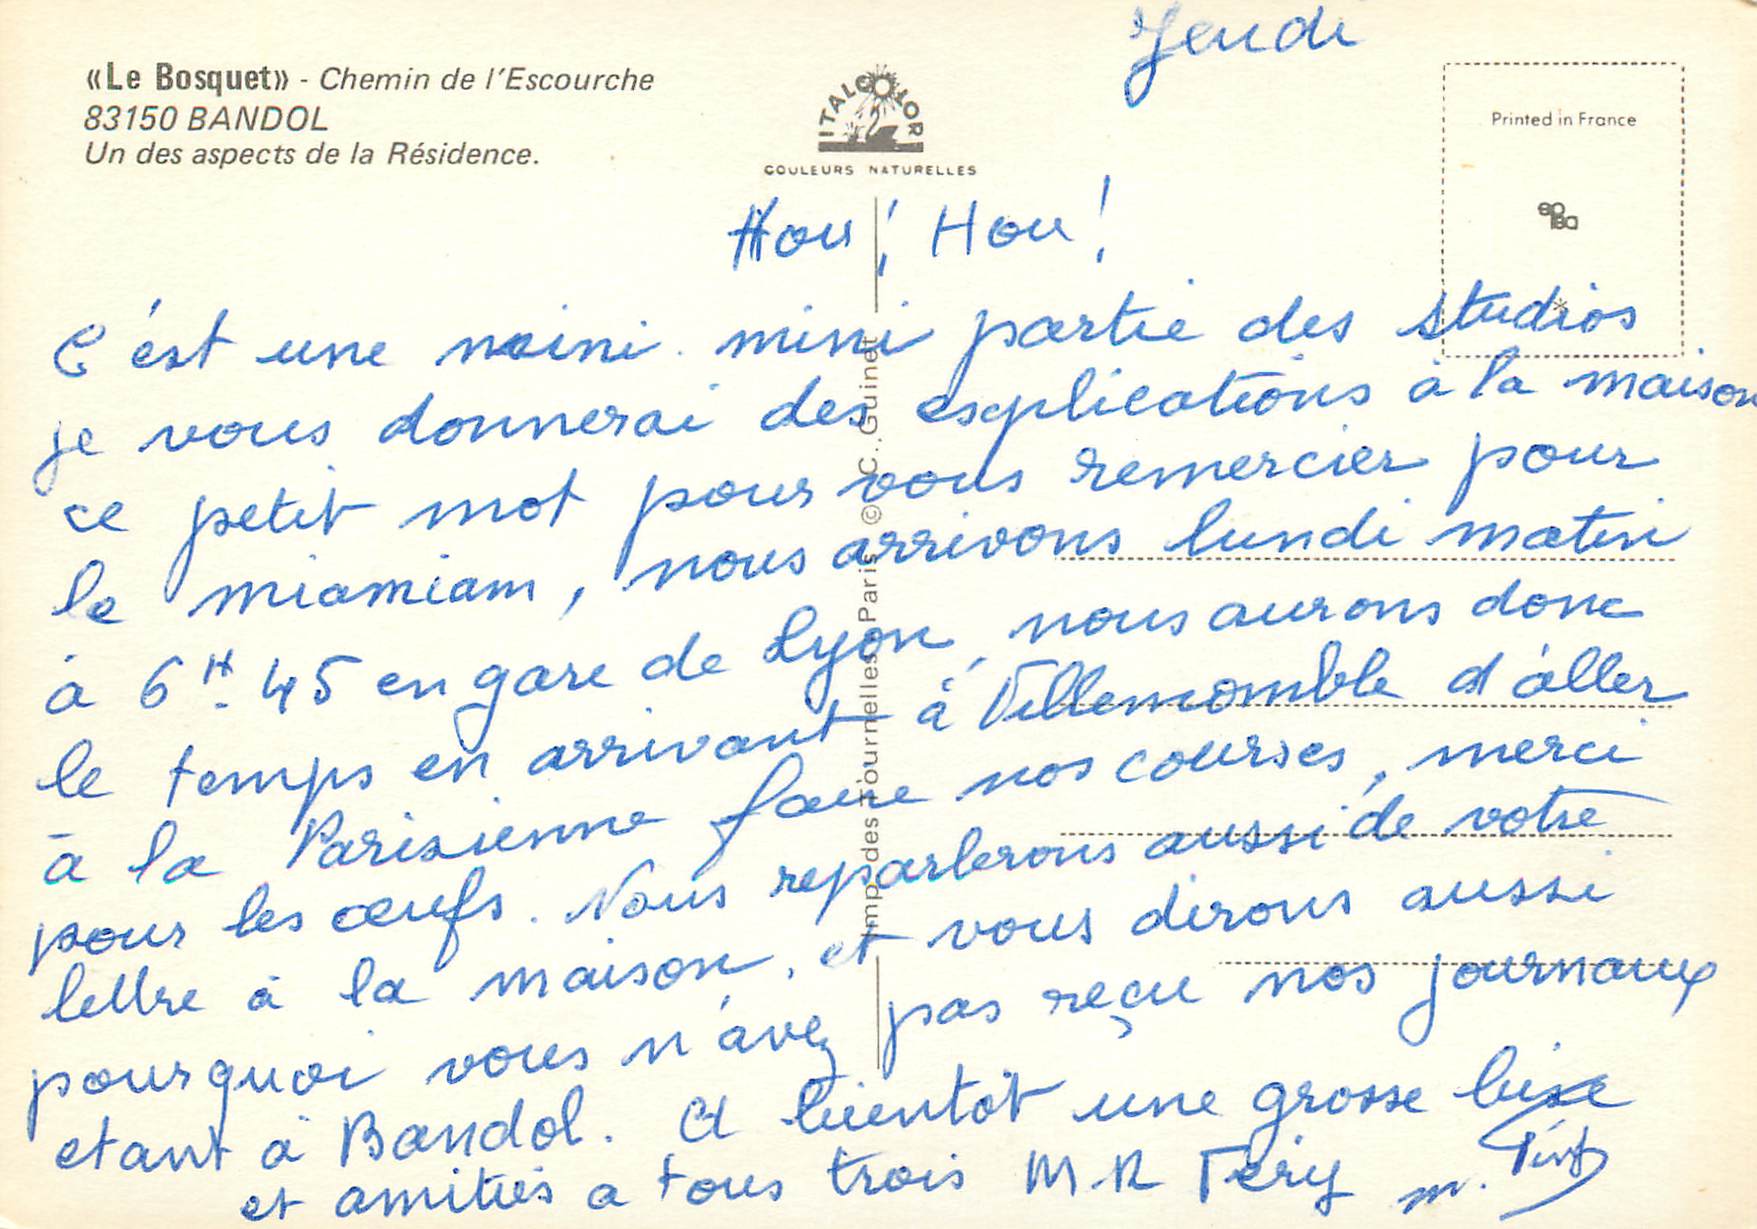 Jeudi
«Le Bosquet» - Chemin de l'Escourche
83150 BANDOL
Un des aspects de la Résidence.
ITALCOLOR
COULEURS NATURELLES
Printed in France
Hou! Hou!
C'est une mini mini partie des studios
je vous donnerai des explications à la maison
ce petit mot pour vous remercier pour
le miamiam, nous arrivons lundi matin
à 6H.45 en gare de Lyon, nous aurons donc
le temps en arrivant à Villemomble d'aller
à la Parisienne faire nos courses, merci
pour les œufs. Nous reparlerons aussi de votre
lettre à la maison, et vous dirons aussi
pourquoi vous n'avez pas reçu nos journaux
etant à Bandol. A bientôt une grosse bise
et amitiés a tous trois M R Fery
Imp. des Tournelles Paris © C. Guinet